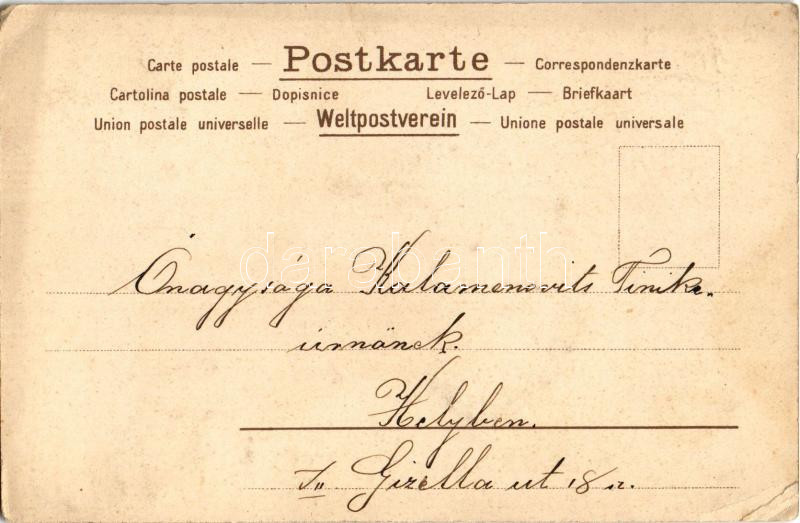 Carte postale — Postkarte — Correspondenzkarte
Cartolina postale — Dopisnice Levelező-Lap — Briefkaart
Union postale universelle — Weltpostverein — Unione postale universale
darabanth
Őnagysága Kalamenovits Tinike
úrnőnek.
Helyben.
Gizella ut 18